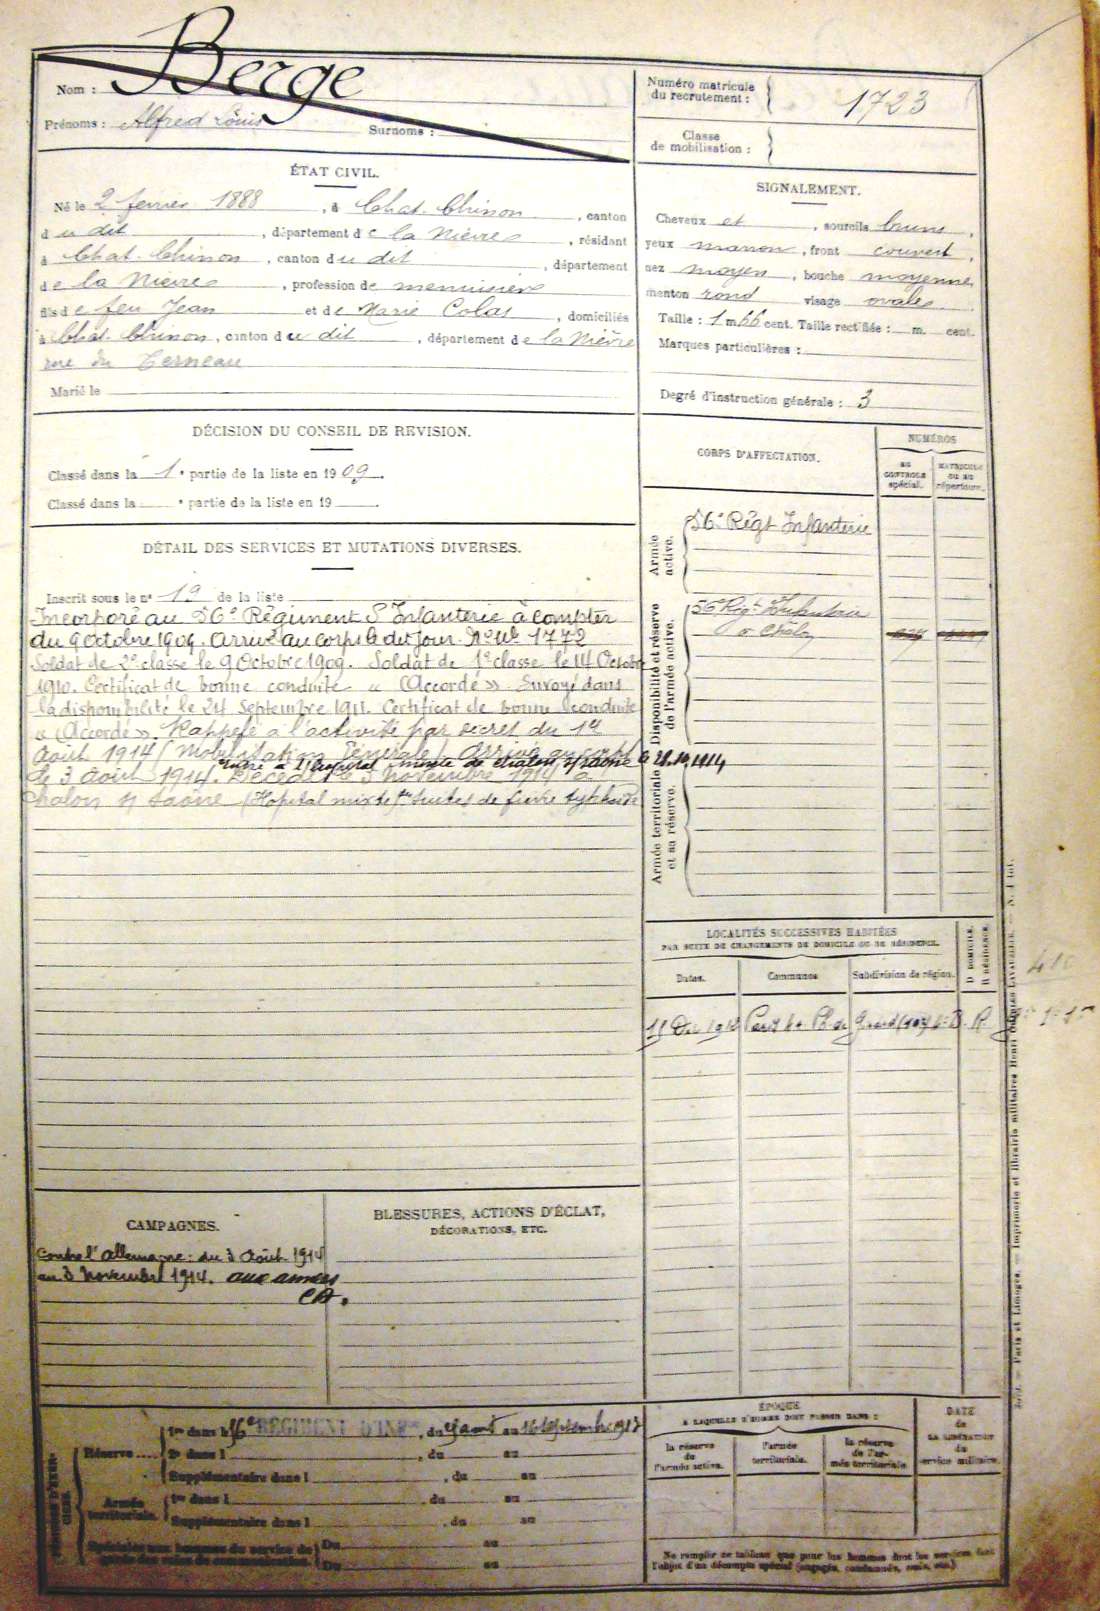 Nom : Berge
Prénoms : Alfred Louis Surnoms :
Numéro matricule du recrutement : 1723
Classe de mobilisation :
ÉTAT CIVIL.
Né le 2 février 1888, à Chat. Chinon, canton
du dit, département de la Nièvre, résidant
à Chat. Chinon, canton du dit, département
de la Nièvre, profession de menuisier
fils de feu Jean et de Marie Colas, domiciliés
à Chat. Chinon, canton du dit, département de la Nièvre
rue du
Marié le
SIGNALEMENT.
Cheveux et , sourcils bruns,
yeux marron, front couvert,
nez moyen, bouche moyenne,
menton rond visage ovale
Taille : 1 m 66 cent. Taille rectifiée : m. cent.
Marques particulières :
Degré d'instruction générale : 3
DÉCISION DU CONSEIL DE REVISION.
Classé dans la 1e partie de la liste en 1909.
Classé dans la e partie de la liste en 19
DÉTAIL DES SERVICES ET MUTATIONS DIVERSES.
Inscrit sous le n° 19 de la liste
Incorporé au 56e Régiment d'Infanterie à compter
du 9 octobre 1909. Arrivé au corps le dit jour. No Mle 1772
Soldat de 2e classe le 9 Octobre 1909. Soldat de 1e classe le 14 Octobre
1910. Certificat de bonne conduite « Accordé » Envoyé dans
la disponibilité le 24 Septembre 1911. Certificat de bonne conduite
« Accordé ». Rappelé à l'activité par décret du 1er
Août 1914 (Mobilisation Générale). Arrivé au corps
entré à l'hôpital mixte de Chalon s/ Saône le 28.10.1914
le 3 Août 1914. Décédé le 3 Novembre 1914 à
Chalon s/ Saône (Hôpital mixte) suites de fièvre typhoïde
CORPS D'AFFECTATION.
NUMÉROS
AU CONTROLE spécial.
MATRICULE OU AU répertoire.
Armée active.
56e Régt Infanterie
Disponibilité et réserve de l'armée active.
56e Régt Infanterie
à Chalon
Armée territoriale et sa réserve.
LOCALITÉS SUCCESSIVES HABITÉES
PAR SUITE DE CHANGEMENTS DE DOMICILE OU DE RÉSIDENCE.
Dates.
Communes
Subdivision de région.
D DOMICILE.
R RÉSIDENCE.
1912
R
CAMPAGNES.
Contre l'Allemagne : du 3 Août 1914
au 3 Novembre 1914. aux armées
BLESSURES, ACTIONS D'ÉCLAT,
DÉCORATIONS, ETC.
Réserve
1re dans le 56e RÉGIMENT D'INF, du août au 16 septembre 1913
2e dans l , du au
Supplémentaire dans l , du au
Armée territoriale.
1re dans l , du au
Supplémentaire dans l , du au
Spéciales aux hommes du service de garde des voies de communication.
Du au
Du au
ÉPOQUE
A LAQUELLE L'HOMME DOIT PASSER DANS :
la réserve de l'armée active.
l'armée territoriale.
la réserve de l'armée territoriale
DATE de LA LIBÉRATION du service militaire.
Ne remplir ce tableau que pour les hommes dont les services font
l'objet d'un décompte spécial (engagés, condamnés, omis, etc.)
Paris et Limoges. — Imprimerie et librairie militaires Henri CHARLES-LAVAUZELLE.